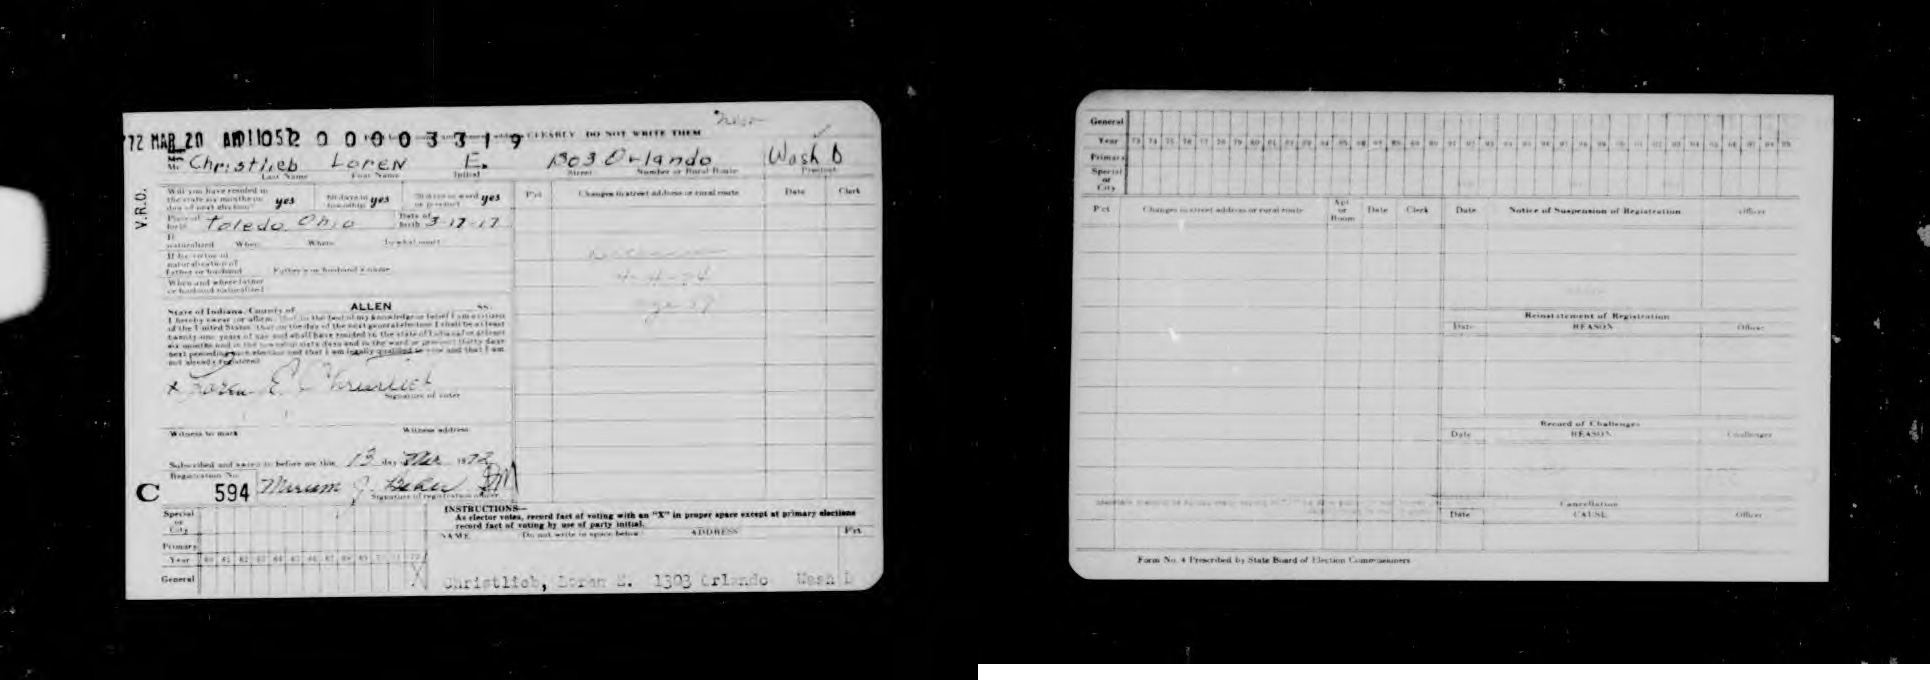 '72 MAR 20 AM 11 05 2 0 0 0 0 3 3 1 9 CLEARLY DO NOT WRITE THEM
Christlieb Loren E. 1303 Orlando Wash D
Last Name First Name Initial Street Number or Rural Route Precinct
V.R.O.
Will you have resided in the state six months on day of next election? yes 60 days in township yes 30 days in ward or precinct yes
Pct Changes in street address or rural route Date Clerk
Place of birth Toledo, Ohio Date of birth 3-17-17
If naturalized When Where In what court
If by virtue of naturalization of father or husband Father's or husband's name
When and where father or husband naturalized
4-4-54
State of Indiana, County of ALLEN ss:
I hereby swear (or affirm) that to the best of my knowledge or belief I am a citizen
of the United States, that on the day of the next general election I shall be at least
twenty-one years of age and shall have resided in the state of Indiana at least
six months and in the township sixty days and in the ward or precinct thirty days
next preceding such election and that I am legally qualified to vote and that I am
not already registered.
x Loren E. Christlieb
Signature of voter
Witness to mark Witness address
Subscribed and sworn to before me this 13 day Mar 1972
Registration No.
C 594
Signature of registration officer
Special or City
Primary
Year 60 61 62 63 64 65 66 67 68 69 70 71 72
General X
INSTRUCTIONS—
As elector votes, record fact of voting with an "X" in proper space except at primary elections
record fact of voting by use of party initial.
NAME (Do not write in space below) ADDRESS Pct
Christlieb, Loren E. 1303 Orlando Wash D
General
Year 73 74 75 76 77 78 79 80 81 82 83 84 85 86 87 88 89 90 91 92 93 94 95 96 97 98 99
Primary
Special or City
Pct Changes in street address or rural route Apt or Room Date Clerk
Date Notice of Suspension of Registration Officer
Reinstatement of Registration
Date REASON Officer
Record of Challenges
Date REASON Challenger
Cancellation
Date CAUSE Officer
Form No. 4 Prescribed by State Board of Election Commissioners